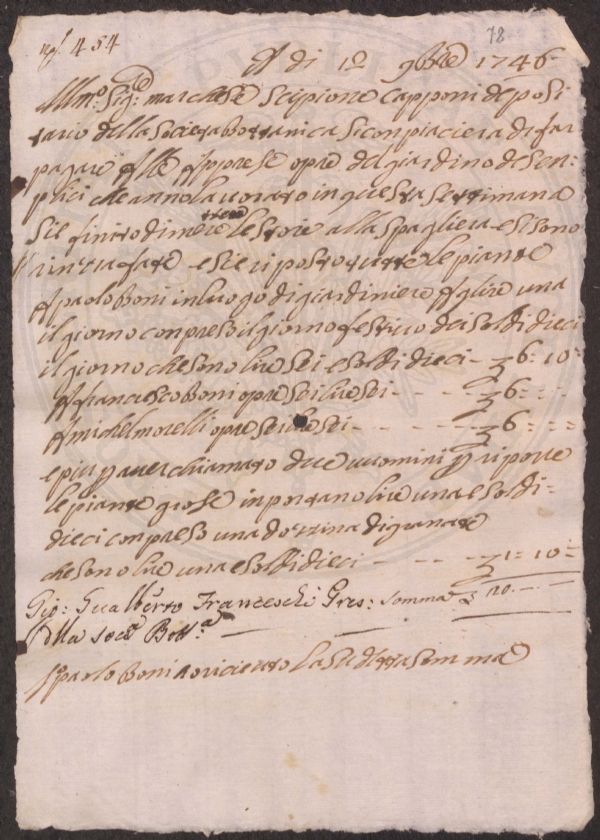 nº. 454
78
A dì 1º 9bre 1746
Illmo. Sigre: marchese Scipione Capponi deposi
tario della Società bottanica si conpiacierà di far
pagare alle apprese opre del giardino de sen-
plici che anno lavorato in questa settimana
Si è finito di mettere le stoie alla spagliera e si sono
e si è riposto tutte le piante
A paolo Boni in luogo di giardiniere A lire una
il giorno conpreso il giorno festivo dei soldi dieci
il giorno che sono lire sei e soldi dieci - - 6 = 10 =
A franciesco Boni opre sei lire sei - - - - 6 = =
A michel morelli opre sei lire sei - - - - 6 = =
e più p aver chiamato due uuomini p riporre
le piante grose inportano lire una e soldi
dieci conpreso una dozzina di granate
che sono lire una e soldi dieci - - - - 1 = 10 =
Gio: Gualberto Franceschi Pres: Somma £ 20. - -
della Socà Bottca
Io paolo Boni ò ricieuto la sudetta somma